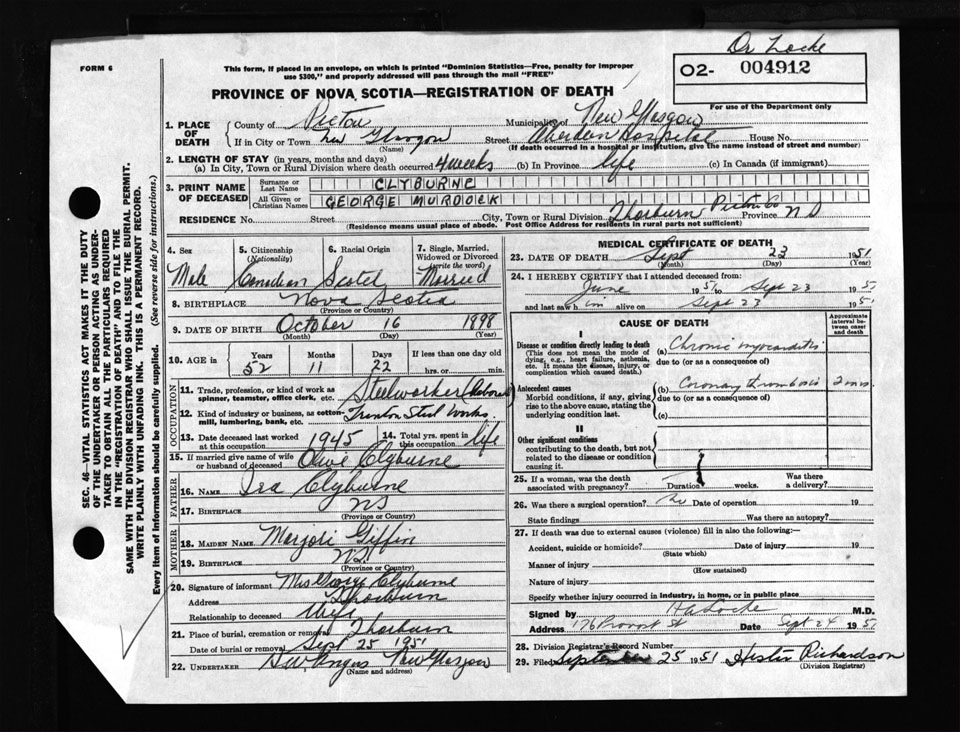 Dr Locke
FORM 6
This form, if placed in an envelope, on which is printed "Dominion Statistics—Free, penalty for improper
use $300," and properly addressed will pass through the mail "FREE"
O2- 004912
For use of the Department only
PROVINCE OF NOVA SCOTIA—REGISTRATION OF DEATH
1. PLACE OF DEATH
County of Pictou Municipality of New Glasgow
If in City or Town New Glasgow Street Aberdeen Hospital House No.
(Name) (If death occurred in a hospital or institution, give the name instead of street and number)
2. LENGTH OF STAY (in years, months and days)
(a) In City, Town or Rural Division where death occurred 4 weeks (b) In Province life (c) In Canada (if immigrant)
3. PRINT NAME OF DECEASED
Surname or Last Name CLYBURNE
All Given or Christian Names GEORGE MURDOCK
RESIDENCE No. Street City, Town or Rural Division Thorburn Pictou Co Province N S
(Residence means usual place of abode. Post Office Address for residents in rural parts not sufficient)
4. Sex Male
5. Citizenship (Nationality) Canadian
6. Racial Origin Scotch
7. Single, Married, Widowed or Divorced (write the word) Married
8. BIRTHPLACE Nova Scotia
(Province or Country)
9. DATE OF BIRTH October 16 1898
(Month) (Day) (Year)
10. AGE in Years 52 Months 11 Days 22 If less than one day old
hrs. or min.
OCCUPATION
11. Trade, profession, or kind of work as spinner, teamster, office clerk, etc. Steelworker (Laborer)
12. Kind of industry or business, as cotton-mill, lumbering, bank, etc. Trenton Steel Works.
13. Date deceased last worked at this occupation 1945
14. Total yrs. spent in this occupation life
15. If married give name of wife or husband of deceased Olive Clyburne
FATHER
16. NAME Ira Clyburne
17. BIRTHPLACE NS
(Province or Country)
MOTHER
18. MAIDEN NAME Marjori Giffin
19. BIRTHPLACE N.S.
(Province or Country)
20. Signature of informant Mrs George Clyburne
Address Thorburn
Relationship to deceased Wife
21. Place of burial, cremation or removal Thorburn
Date of burial or removal Sept 25 1951
22. UNDERTAKER Angus New Glasgow
(Name and address)
MEDICAL CERTIFICATE OF DEATH
23. DATE OF DEATH Sept 23 1951
(Month) (Day) (Year)
24. I HEREBY CERTIFY that I attended deceased from:
June 1951 to Sept 23 1951
and last saw him alive on Sept 23 1951
CAUSE OF DEATH
Approximate interval between onset and death
I
Disease or condition directly leading to death
(This does not mean the mode of dying, e.g., heart failure, asthenia, etc. It means the disease, injury, or complication which caused death.)
(a) Chronic myocarditis
due to (or as a consequence of)
Antecedent causes
Morbid conditions, if any, giving rise to the above cause, stating the underlying condition last.
(b) Coronary thrombosis
due to (or as a consequence of)
(c)
II
Other significant conditions
contributing to the death, but not related to the disease or condition causing it.
25. If a woman, was the death associated with pregnancy? Duration weeks. Was there a delivery?
26. Was there a surgical operation? No Date of operation 19
State findings Was there an autopsy?
27. If death was due to external causes (violence) fill in also the following:—
Accident, suicide or homicide? Date of injury 19
(State which)
Manner of injury
(How sustained)
Nature of injury
Specify whether injury occurred in industry, in home, or in public place
Signed by H A Locke M.D.
Address 176 Provost St Date Sept 24 1951
28. Division Registrar's Record Number
29. Filed September 25 1951 Hester Richardson
(Division Registrar)
SEC. 46—VITAL STATISTICS ACT MAKES IT THE DUTY
OF THE UNDERTAKER OR PERSON ACTING AS UNDER-
TAKER TO OBTAIN ALL THE PARTICULARS REQUIRED
IN THE "REGISTRATION OF DEATH" AND TO FILE THE
SAME WITH THE DIVISION REGISTRAR WHO SHALL ISSUE THE BURIAL PERMIT.
WRITE PLAINLY WITH UNFADING INK. THIS IS A PERMANENT RECORD.
Every item of Information should be carefully supplied. (See reverse side for instructions.)